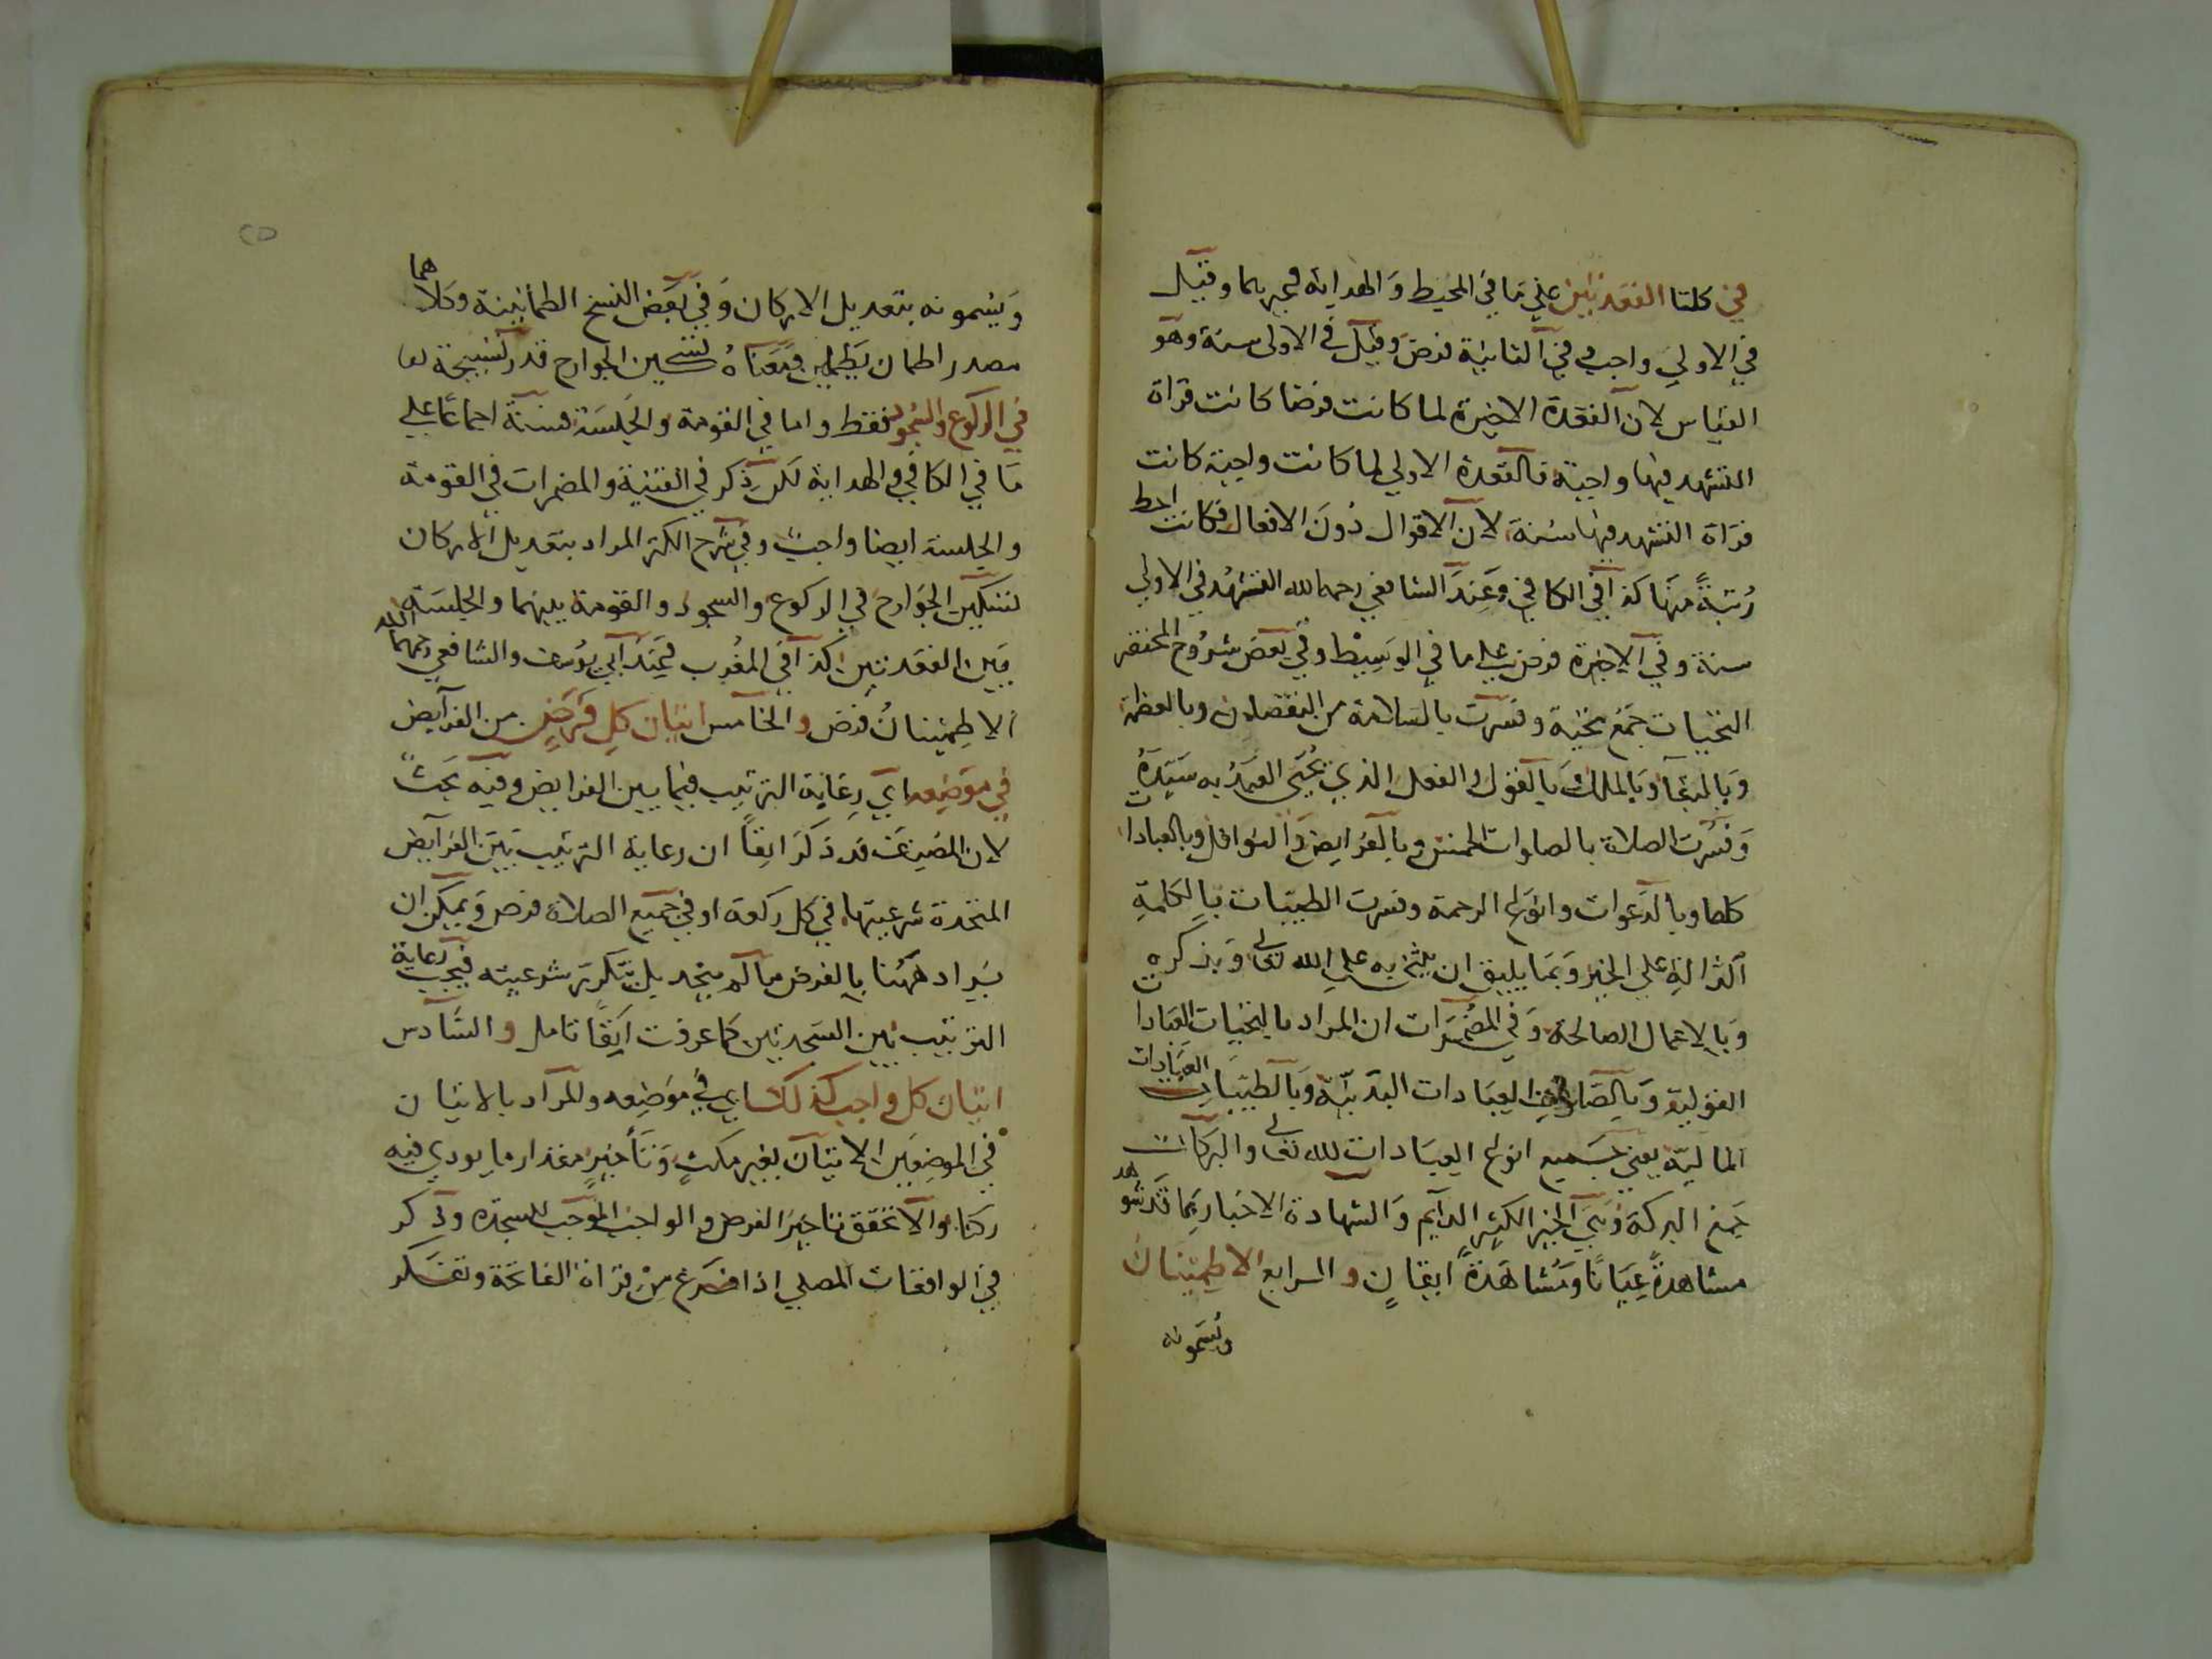 في كلتا القعدتين علي ما في المحيط والهداية وغيرهما وقيل
في الاولي واجب وفي الثانية فرض وقيل في الاولى سنة وهو
القياس لان القعدة الاخيرة لما كانت فرضا كانت قراة
التشهد فيها واجبة فالقعدة الاولي لما كانت واجبة كانت
قراة التشهد فيها سنة لان الاقوال دون الافعال فكانت احط
رتبة منها كذا في الكافي وعند الشافعي رحمه الله التشهد في الاولي
سنة وفي الاخيرة فرض علي ما في الوسيط وفي بعض شروح المختصر
التحيات جمع تحية وفسرت بالسلامة من النقصان وبالعظمة
وبالبقا وبالملك وبالقول والفعل الذي يحيي العبد به سيده
وفسرت الصلاة بالصلوات الخمس وبالفرايض والنوافل وبالعبادات
كلها وبالدعوات وانواع الرحمة وفسرت الطيبات بالكلمة
الدالة علي الخير وبما يليق ان يثني به علي الله تعالى وبذكره
وبالاعمال الصالحة وفي المضمرات ان المراد بالتحيات العبادات
القولية وبالصلوات العبادات البدنية وبالطيبات العبادات
المالية يعني جميع انواع العبادات لله تعالى والبركات
جمع البركة وهي الخير الكثير الدايم والشهادة الاخبار بما قد شوهد
مشاهدة عيانا ومشاهدة ايقان والرابع الاطمينان
ويسمونه
ويسمونه بتعديل الاركان وفي بعض النسخ الطمانينة وكلاهما
مصدر اطمان يطمين ومعناه تسكين الجوارح قدر تسبيحة
في الركوع والسجود فقط واما في القومة والجلسة فسنة اجماعا علي
ما في الكافي والهداية لكن ذكر في القنية والمضمرات في القومة
والجلسة ايضا واجب وفي شرح الكنز المراد بتعديل الاركان
تسكين الجوارح في الركوع والسجود والقومة بينهما والجلسة
بين القعدتين كذا في المغرب وعند ابي يوسف والشافعي رحمهما الله
الاطمينان فرض والخامس اتيان كل فرض من الفرايض
في موضعه اي رعاية الترتيب فيما بين الفرايض وفيه بحث
لان المصنف قد ذكر انفا ان رعاية الترتيب بين الفرايض
المتحدة شرعيتها في كل ركعة او في جميع الصلاة فرض ويمكن ان
يراد ههنا بالفرض ما لم يتحد بل تتكرر شرعيته فيجب رعاية
الترتيب بين السجدتين كما عرفت انفا تامل والسادس
اتيان كل واجب كذلك اي في موضعه والمراد بالاتيان
في الموضعين الاتيان بغير مكث وتاخير مقدار ما يودي فيه
ركنا والا تحقق تاخير الفرض والواجب الموجب للسجدة وذكر
في الواقعات المصلي اذا فرغ من قراة الفاتحة وتفكر